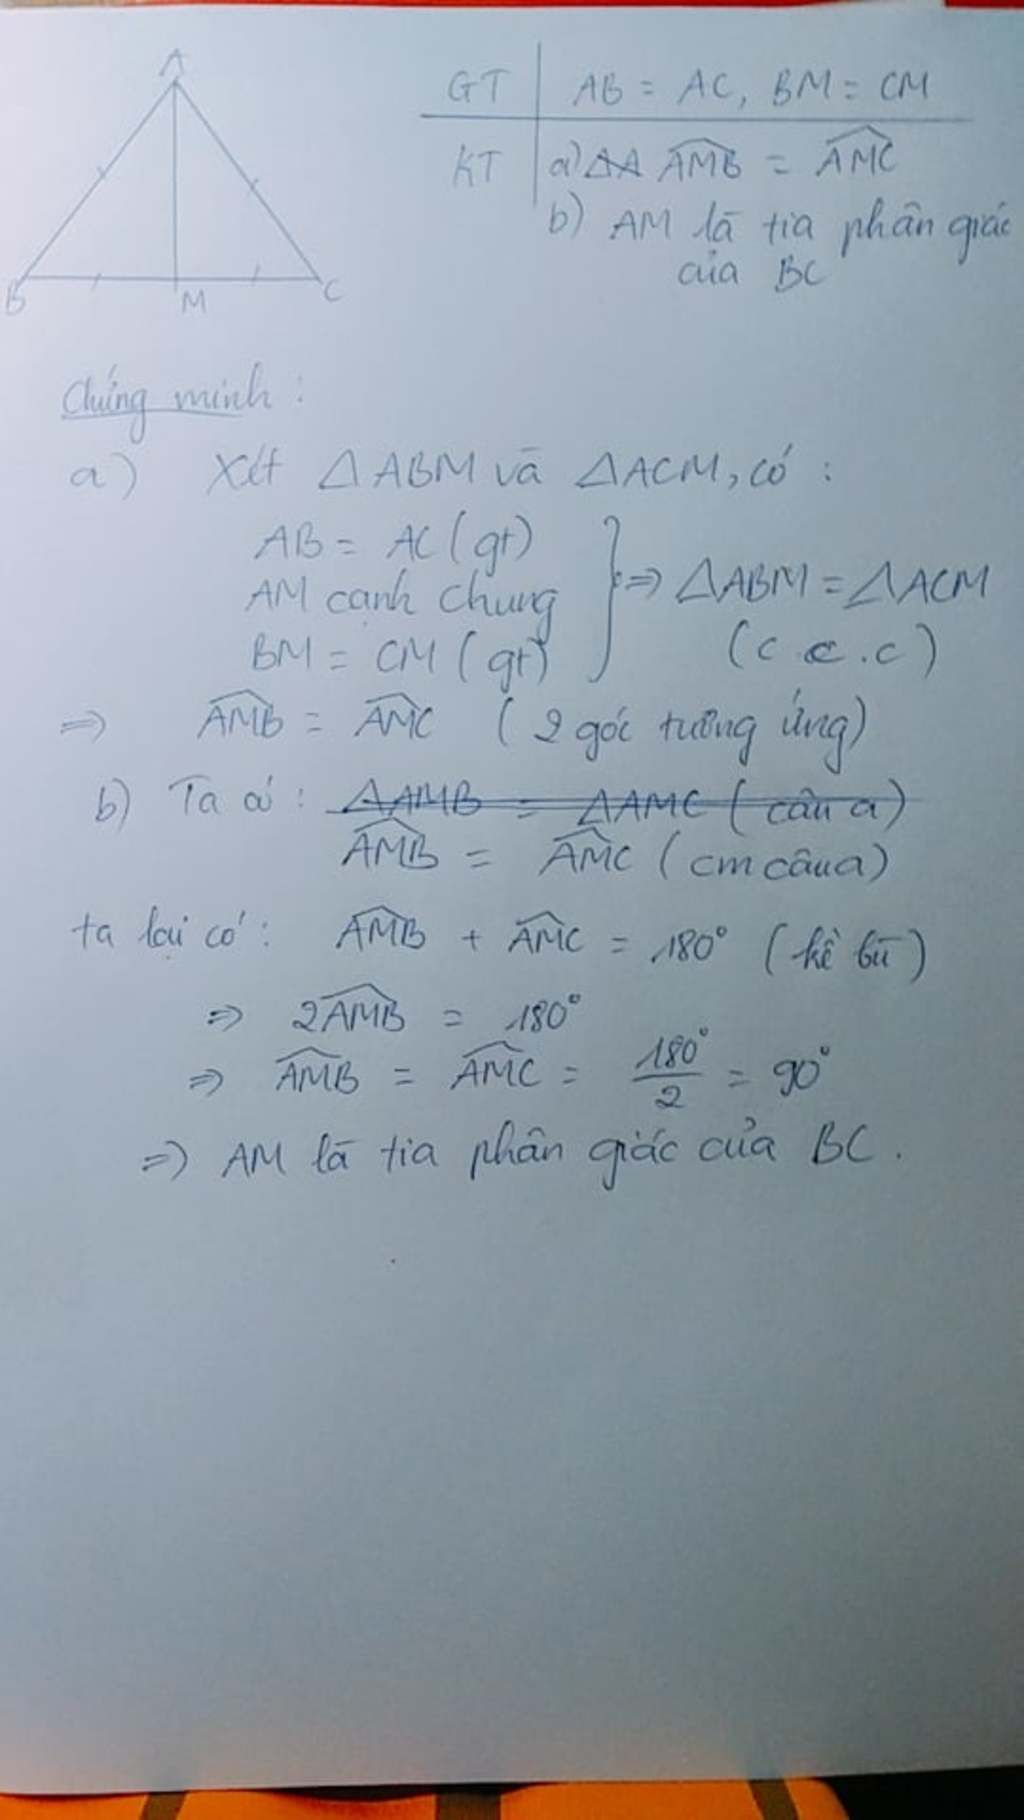 A
B
M
C
GT AB = AC, BM = CM
KT a) AMB = AMC
b) AM là tia phân giác
của BC
Chứng minh :
a) Xét △ABM và △ACM, có :
AB = AC (gt)
AM cạnh chung
BM = CM (gt)
⇒ △ABM = △ACM
(c c.c)
⇒ AMB = AMC (2 góc tương ứng)
b) Ta có : △AMB = △AMC (câu a)
AMB = AMC (cm câu a)
ta lại có : AMB + AMC = 180° (kề bù)
⇒ 2AMB = 180°
⇒ AMB = AMC = 180°/2 = 90°
⇒ AM là tia phân giác của BC.